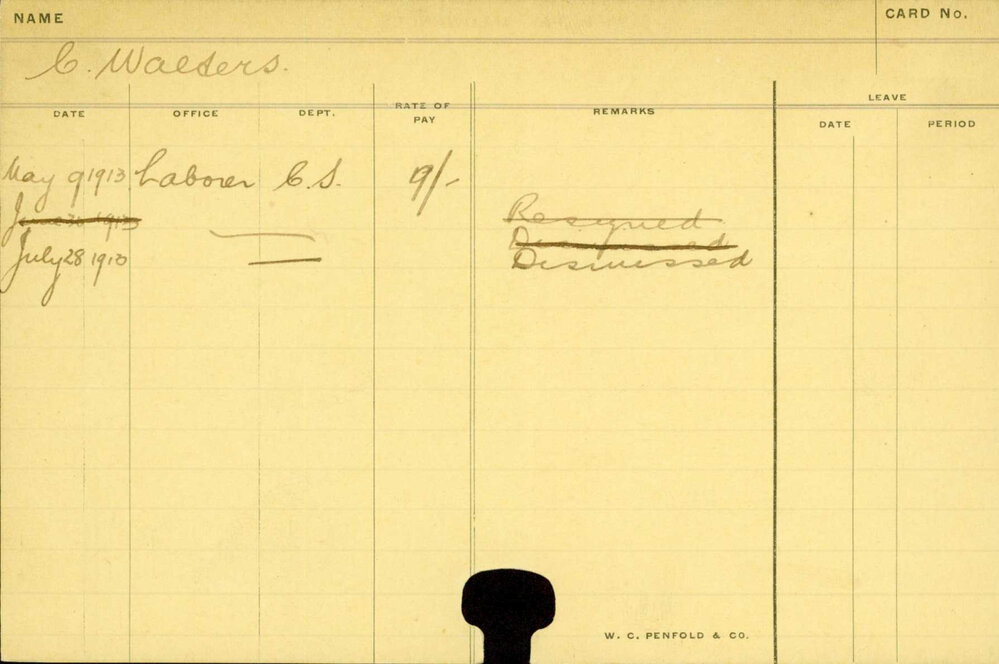 NAME
CARD No.
C. Walters.
DATE OFFICE DEPT. RATE OF PAY REMARKS LEAVE
DATE PERIOD
May 9 1913 Laborer C.S. 9/-
June 30 1913 Resigned
Dismissed
July 28 1913 Dismissed
W. C. PENFOLD & CO.